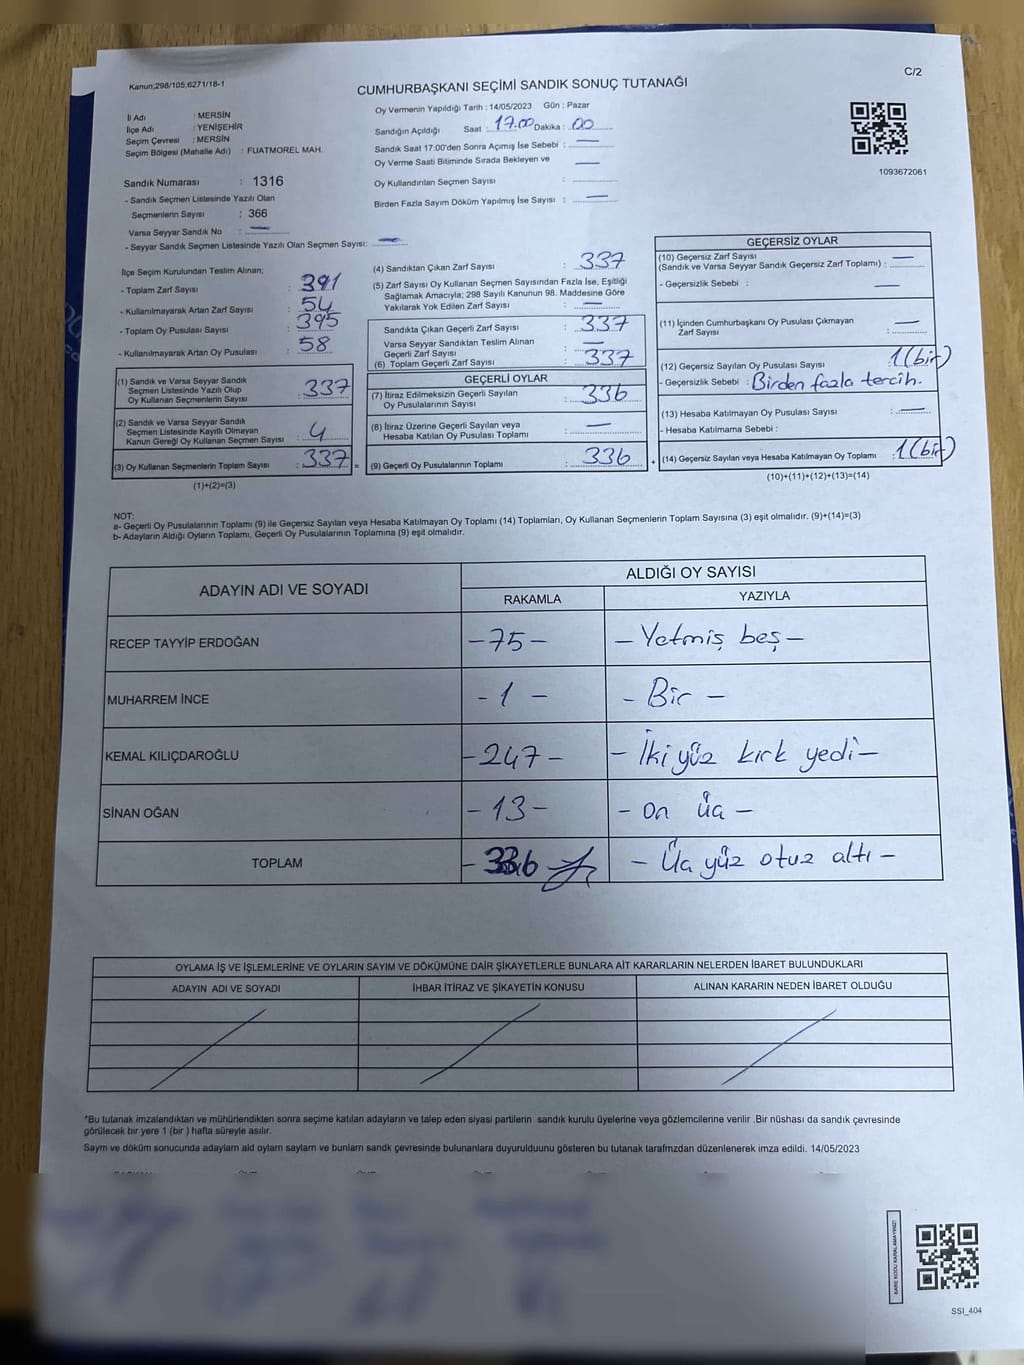 Kanun;298/105;6271/18-1
C/2
CUMHURBAŞKANI SEÇİMİ SANDIK SONUÇ TUTANAĞI
İl Adı : MERSİN
İlçe Adı : YENİŞEHİR
Seçim Çevresi : MERSİN
Seçim Bölgesi (Mahalle Adı) : FUATMOREL MAH.
Sandık Numarası : 1316
- Sandık Seçmen Listesinde Yazılı Olan
Seçmenlerin Sayısı : 366
Varsa Seyyar Sandık No : —
- Seyyar Sandık Seçmen Listesinde Yazılı Olan Seçmen Sayısı: —
Oy Vermenin Yapıldığı Tarih : 14/05/2023 Gün : Pazar
Sandığın Açıldığı Saat : 17.00 Dakika : 00
Sandık Saat 17:00'den Sonra Açımış İse Sebebi : —
Oy Verme Saati Bitiminde Sırada Bekleyen ve —
Oy Kullandırılan Seçmen Sayısı :
Birden Fazla Sayım Döküm Yapılmış İse Sayısı : —
1093672061
İlçe Seçim Kurulundan Teslim Alınan;
- Toplam Zarf Sayısı : 391
- Kullanılmayarak Artan Zarf Sayısı : 54
- Toplam Oy Pusulası Sayısı : 395
- Kullanılmayarak Artan Oy Pusulası : 58
(1) Sandık ve Varsa Seyyar Sandık
Seçmen Listesinde Yazılı Olup
Oy Kullanan Seçmenlerin Sayısı : 337
(2) Sandık ve Varsa Seyyar Sandık
Seçmen Listesinde Kayıtlı Olmayan
Kanun Gereği Oy Kullanan Seçmen Sayısı : 4
(3) Oy Kullanan Seçmenlerin Toplam Sayısı : 337 =
(1)+(2)=(3)
(4) Sandıktan Çıkan Zarf Sayısı : 337
(5) Zarf Sayısı Oy Kullanan Seçmen Sayısından Fazla İse, Eşitliği
Sağlamak Amacıyla; 298 Sayılı Kanunun 98. Maddesine Göre
Yakılarak Yok Edilen Zarf Sayısı : —
Sandıkta Çıkan Geçerli Zarf Sayısı : 337
Varsa Seyyar Sandıktan Teslim Alınan
Geçerli Zarf Sayısı : —
(6) Toplam Geçerli Zarf Sayısı : 337
GEÇERLİ OYLAR
(7) İtiraz Edilmeksizin Geçerli Sayılan
Oy Pusulalarının Sayısı : 336
(8) İtiraz Üzerine Geçerli Sayılan veya
Hesaba Katılan Oy Pusulası Toplamı : —
(9) Geçerli Oy Pusulalarının Toplamı : 336 +
GEÇERSİZ OYLAR
(10) Geçersiz Zarf Sayısı —
(Sandık ve Varsa Seyyar Sandık Geçersiz Zarf Toplamı) :
- Geçersizlik Sebebi : —
(11) İçinden Cumhurbaşkanı Oy Pusulası Çıkmayan
Zarf Sayısı : —
(12) Geçersiz Sayılan Oy Pusulası Sayısı : 1 (bir)
- Geçersizlik Sebebi : Birden fazla tercih.
(13) Hesaba Katılmayan Oy Pusulası Sayısı : —
- Hesaba Katılmama Sebebi :
(14) Geçersiz Sayılan veya Hesaba Katılmayan Oy Toplamı : 1 (bir)
(10)+(11)+(12)+(13)=(14)
NOT:
a- Geçerli Oy Pusulalarının Toplamı (9) ile Geçersiz Sayılan veya Hesaba Katılmayan Oy Toplamı (14) Toplamları, Oy Kullanan Seçmenlerin Toplam Sayısına (3) eşit olmalıdır. (9)+(14)=(3)
b- Adayların Aldığı Oyların Toplamı, Geçerli Oy Pusulalarının Toplamına (9) eşit olmalıdır.
ADAYIN ADI VE SOYADI
ALDIĞI OY SAYISI
RAKAMLA YAZIYLA
RECEP TAYYİP ERDOĞAN -75- -Yetmiş beş-
MUHARREM İNCE -1- -Bir-
KEMAL KILIÇDAROĞLU -247- -İki yüz kırk yedi-
SİNAN OĞAN -13- -On üç-
TOPLAM -336 -Üç yüz otuz altı-
OYLAMA İŞ VE İŞLEMLERİNE VE OYLARIN SAYIM VE DÖKÜMÜNE DAİR ŞİKAYETLERLE BUNLARA AİT KARARLARIN NELERDEN İBARET BULUNDUKLARI
ADAYIN ADI VE SOYADI İHBAR İTİRAZ VE ŞİKAYETİN KONUSU ALINAN KARARIN NEDEN İBARET OLDUĞU
*Bu tutanak imzalandıktan ve mühürlendikten sonra seçime katılan adayların ve talep eden siyasi partilerin sandık kurulu üyelerine veya gözlemcilerine verilir .Bir nüshası da sandık çevresinde
görülecek bir yere 1 (bir ) hafta süreyle asılır.
Saym ve döküm sonucunda adaylarn ald oylarn saylarn ve bunlarn sandk çevresinde bulunanlara duyurulduunu gösteren bu tutanak tarafmzdan düzenlenerek imza edildi. 14/05/2023
KARE KODU KARALAMAYINIZ!
SSI_404